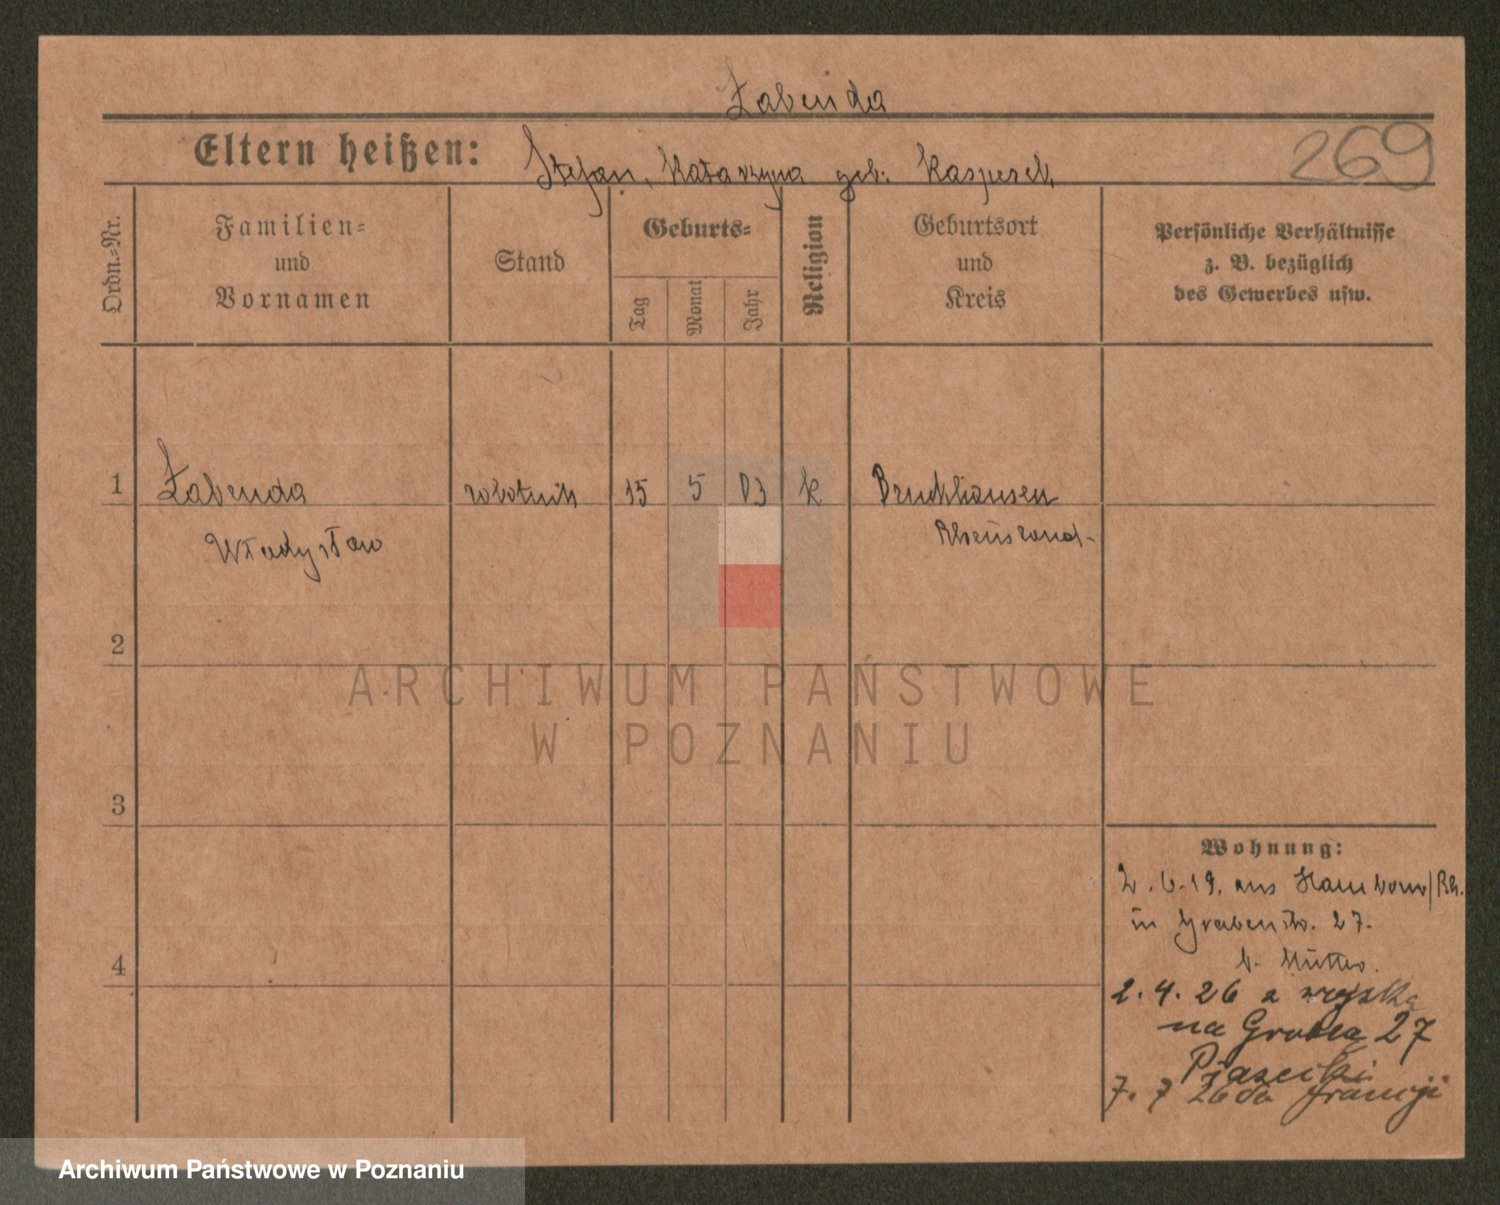 Łabenda
Eltern heißen: Stefan, Katarzyna geb. Kasperek
269
Ordn.-Nr.
Familien-
und
Vornamen
Stand
Geburts-
Tag
Monat
Jahr
Religion
Geburtsort
und
Kreis
Persönliche Verhältnisse
z. B. bezüglich
des Gewerbes usw.
1 Łabenda robotnik 15 5 03 k Bruckhausen
Władysław Rheinland-
2
ARCHIWUM PAŃSTWOWE
W POZNANIU
3
Wohnung:
2.6.19. aus Hamborn/Rh.
in Grabenstr. 27.
b. Mutter.
4
2.4.26 z wojska
na Grobla 27
Piasecki
7. 7 26 do Francji
Archiwum Państwowe w Poznaniu